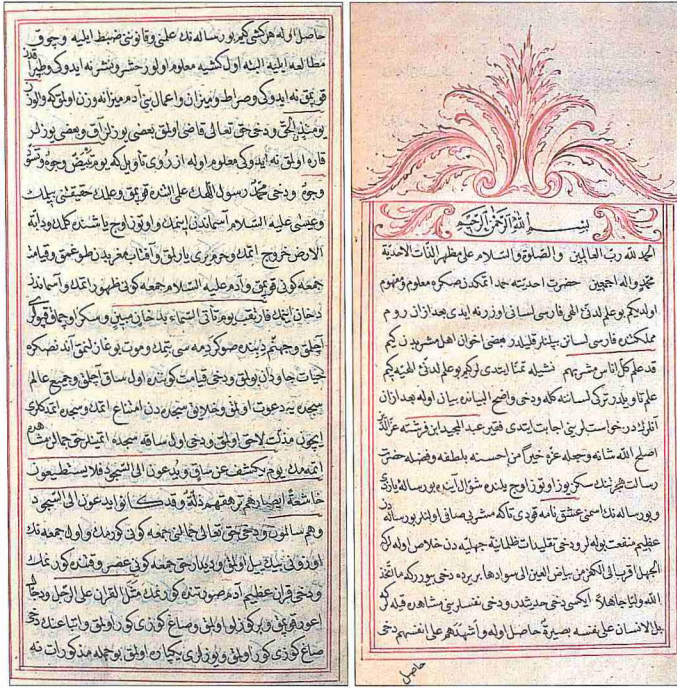 بسم الله الرحمن الرحيم
الحمد لله رب العالمين والصلوة والسلام على مظهر الذات الاحدية
محمد واله اجمعين حضرت احديته حمد اتمكدنصكره معلوم ومفهوم
اوله كم بو علم لدنئ الهى فارسى لسانى اوزرنه ايدى بعد ازان روم
مملكتنده فارسى لسانن بيلنلر قليلدر بعضى اخوان اهل مشربدن كيم
قد علم كل اناس مشربهم نشيله تمنا ايتدى لركيم بو علم لدنئ الهيه كيم
علم تاويلدر ترك لسانته كله ودخى واضح البيانده بيان اوله بعد ازان
انلرك درخواستلرينى اجابت ايتدى فقير عبد المجيد ابن فرشته عز الدين
اصلح الله شانه وجعله غده خيرا من احسنه بلطفه وفضله حضرت
رسالت هجرتنك سكز يوز اوتوز اوچ يلنده شوال آينده بو رساله يازدى
وبو رساله نك اسمنى عشق نامه قودى تاكه مشربى صافى اولنلر بو رساله دن
عظيم منفعت بوله لر ودخى تقليدات ظلمانية جهليه دن خلاص اوله لركه
الجهل اقرب الى الكفر من بياض العين الى سوادها بريرده دخى بيورركه ما اتخذ
الله وليا جاهلا ايكسى دخى حديثدر ودخى نفسلرينى مشاهده قيله لركه
بل الانسان على نفسه بصيرة حاصل اوله واشهدهم على انفسهم دخى
حاصل
حاصل اوله هر كشى كيم بو رساله نك علمنى وقانوننى ضبط ايليه وچوق
مطالعه ايليه البته اول كشيه معلوم اولور حشر ونشر نه ايدوكى وطبراقدن
قوپمق نه ايدوكى وصراط وميزان واعمال بنى آدم ميزانه وزن اولمق كه والوزن
يومئذ الحق ودخى حق تعالى قاضى اولمق بعضى يوزلر آق وبعضى يوزلر
قاره اولمق نه ايدوكى معلوم اوله از روى تأويل كه يوم تبيض وجوه وتسود
وجوه ودخى محمد رسول اللهك على التده قوپمق وعلك حقيقتنى بيلمك
وعيسى عليه السلام آسماندن اينمك و اوتوز اوچ ياشنده كلمك ودابة
الارض خروج اتمك وحرم يرى يارلمق وآفتاب مغربدن طوغمق وقيامت
جمعه كونى قوپمق وآدم عليه السلام جمعه كونى ظهور اتمك وآسماندن
دخان اينمك فارتقب يوم تأتى السماء بدخان مبين وسكز اوچماق قپوكرى
آچلمق وجهنم دبنده صو كرده مه سى بتمك وموت بوغازلنمق آندنصكره
حيات جاودان اولمق ودخى قيامت كوننده اول ساق آچلمق وجميع عالم
سجده يه دعوت اولنمق وخلايق سجده دن امتناع اتمك وسجده اتمدكلرى
ايچون مذلت لاحق اولمق ودخى اول ساقه سجده اتمينلر حق جمالن مشاهده
اتممك يوم يكشف عن ساق ويدعون الى السجود فلا يستطيعون
خاشعة ابصارهم ترهقهم ذلة وقد كانوا يدعون الى السجود
وهم سالمون ودخى حق تعالى جمالنى جمعه كونى كورمك و اول جمعه نك
اوزونى بيك ييل اولمق وديدار حق جمعه كونى عصر وقتنده كورنمك
ودخى قران عظيم آدم صورتنده كورنمك مثل القران على الرجل ودجال
اعور قوپمق وبر كوزلو اولمق وصاغ كوزى كور اولمق واتباعنك دخى
صاغ كوزى كور اولمق ويوزلرى يكپاره اولمق بو جمله مذكورات نه